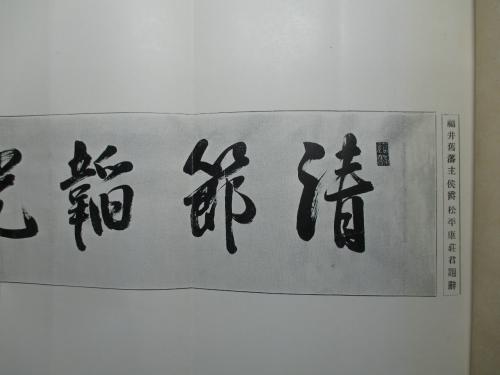 福井舊藩主侯爵松平康莊君題辭
清節韜